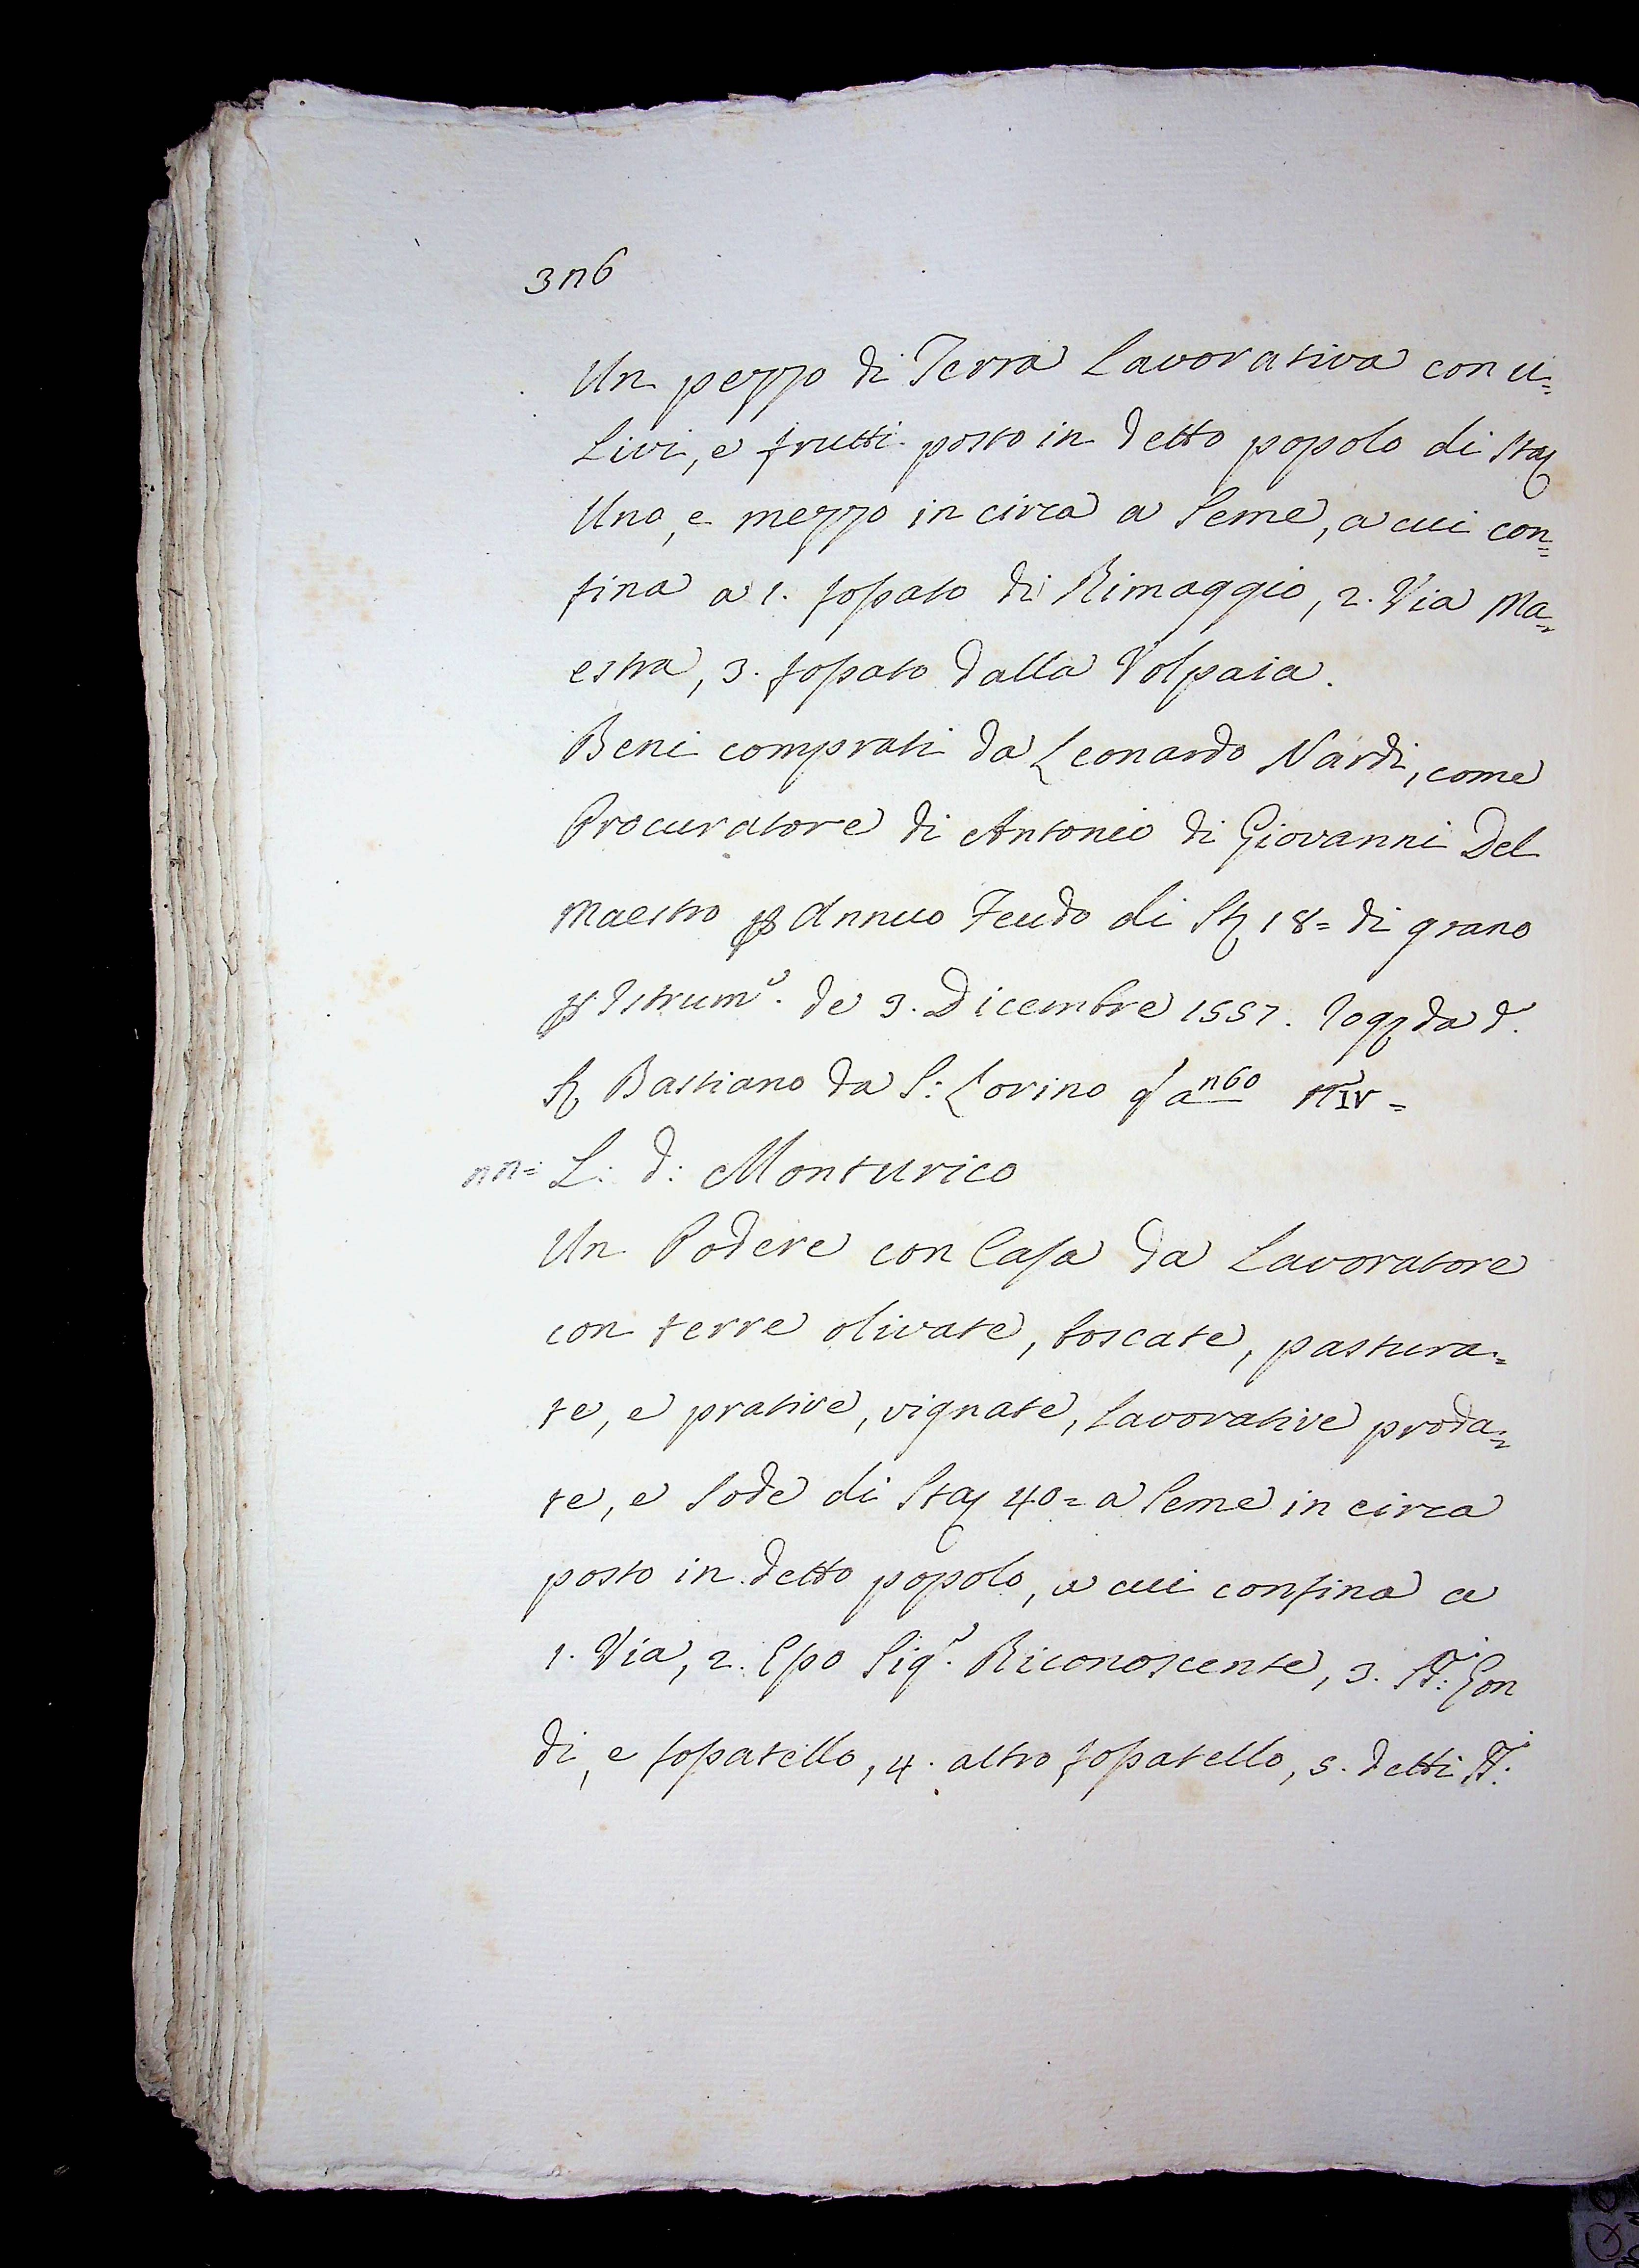 3n6
Un pezzo di Terra Lavorativa con u=
livi, e frutti posto in detto popolo di Staj
Uno, e mezzo in circa a Seme, a cui con=
fina a 1. fossato di Rimaggio, 2. Via Ma=
estra, 3. fossato dalla Volpaia.
Beni comprati da Leonardo Nardi, come
Procuratore di Antonio di Giovanni Del
Maestro p Annuo Feudo di St 18= di grano
p Istrum.º de 3. Dicembre 1557. Rog da d.
S Bastiano da S: Lorino fa n60 N IV=
nn= L: d: Monturico
Un Podere con Casa da Lavoratore
con terre olivate, boscate, pastura=
te, e prative, vignate, lavorative proda=
te, e Sode di Staj 40= a Seme in circa
posto in detto popolo, a cui confina a
1. Via, 2. Esso Sig.r Riconoscente, 3. Gon
di, e fossatello, 4. altro fossatello, 5. detti